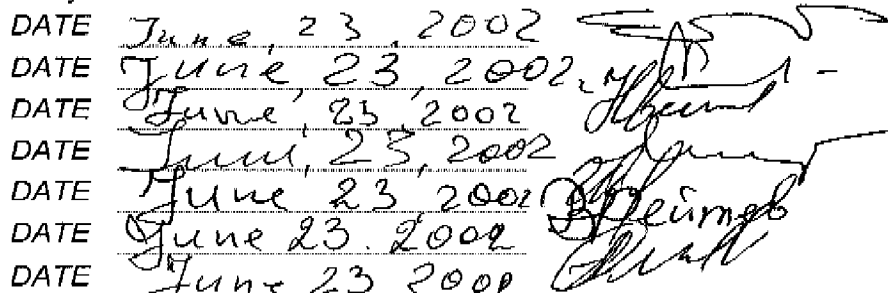 DATE June, 23, 2002
DATE June, 23, 2002.
DATE June, 23, 2002
DATE June, 23, 2002
DATE June 23, 2002
DATE June 23. 2002
DATE June 23 2002